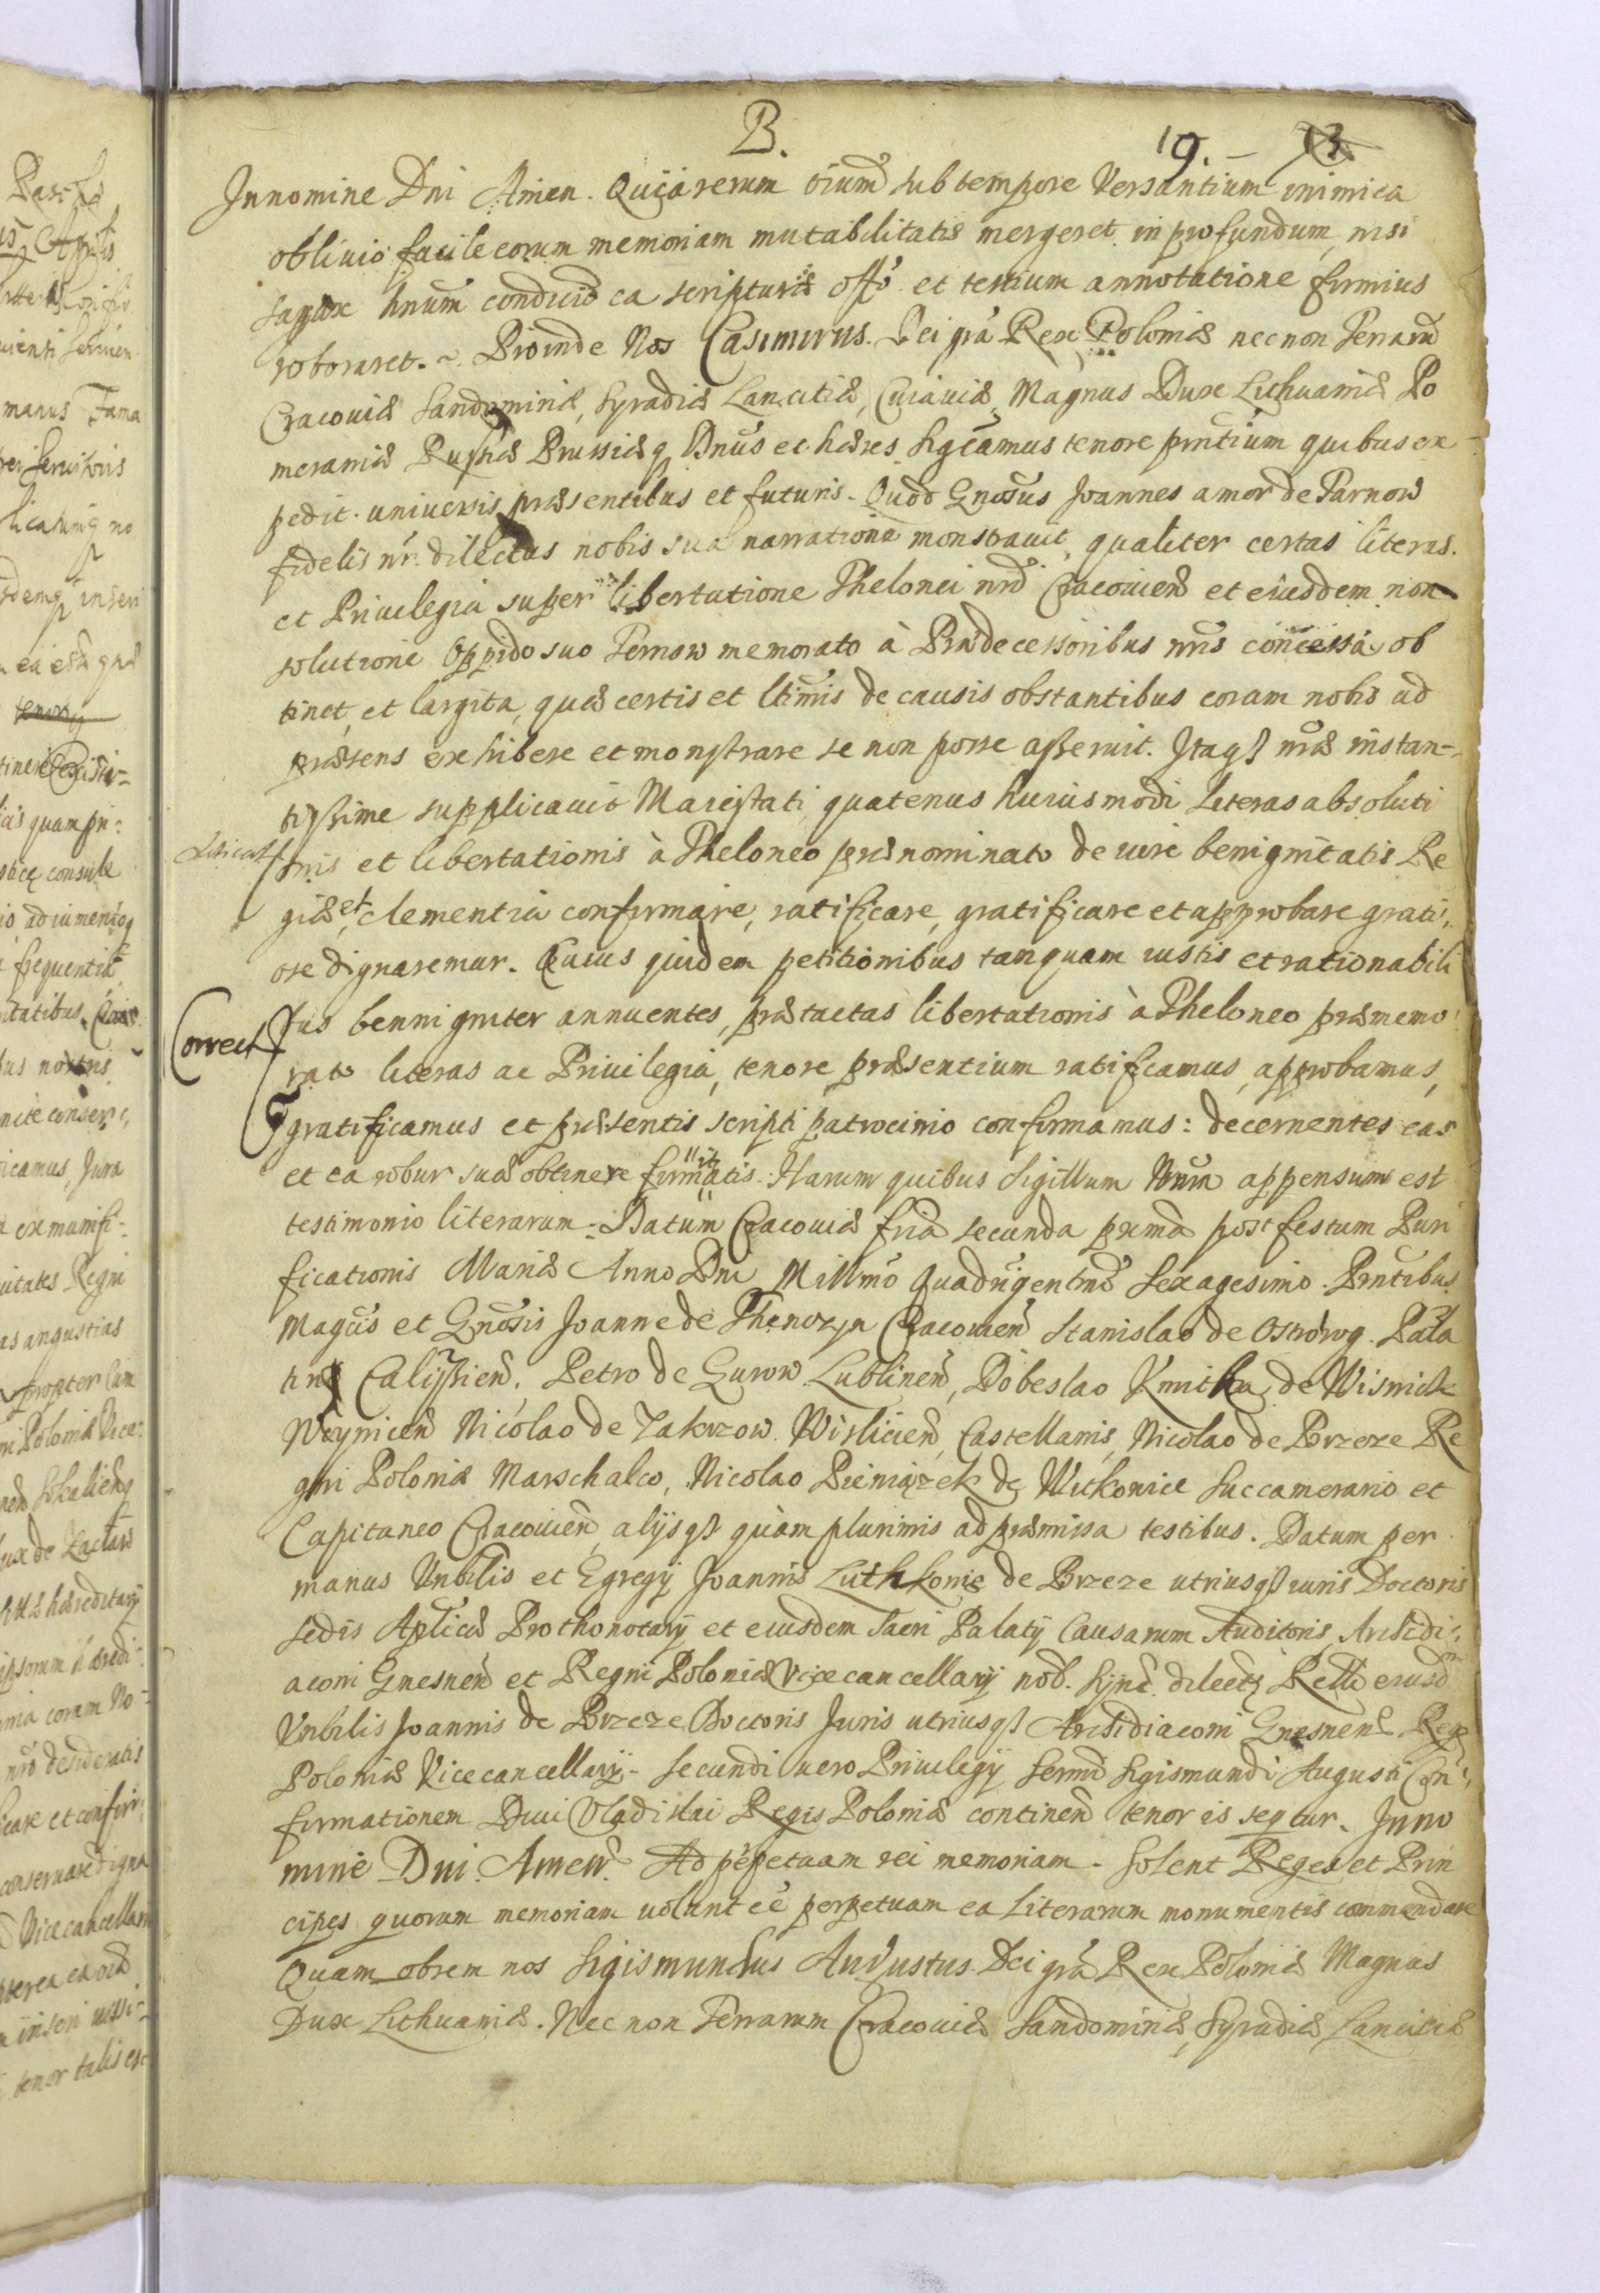 B.
19. 13
Innomine Dni Amen. Quia rerum oium sub tempore Versantium inimica
obliuio facile eorum memoriam mutabilitatis mergeret in profundum, nisi
sagax hnum conduio ea scripturis offo et testium annotatione firmius
roboraret. ~ Proinde Nos Casimirus. Dei gra Rex Poloniæ necnon Terrarũ
Cracouiæ Sandominiæ, Syradiæ Lanciciæ, Cuiauiæ, Magnus Dux Lithuaniæ Po
meraniæ Russiæ Prussiæq Dnus et hæres Sigcamus tenore pntium quibus ex
pedit uniuersis præsentibus et futuris. Quod Gnosus Joannes amor de Tarnow
fidelis nr. dilectus nobis sua narratione monstrauit, qualiter certas literas
et Priuilegia super libertatione Thelonei nri Cracouien et eiusdem non
solutione Oppido suo Ternow memorato à Prædecessoribus nris concessa, ob
tinet, et largita, quæ certis et ltimis de causis obstantibus coram nobis ad
præsens exhibere et monstrare se non posse asseruit. Itaq nræ instan-
tissime supplicauit Maiestati, quatenus huiusmodi Literas absoluti
onis et libertationis à Theloneo prænominato de uire benignitatis Re
giæ et clementia confirmare, ratificare, gratificare et approbare grati
ose dignaremur. Cuius quidem petitionibus tanquam iustis et rationabili
Correct
bus benigniter annuentes, prætactas libertationis à Theloneo præmemo
rato literas ac Priuilegia, tenore præsentium ratificamus, approbamus,
gratificamus et præsentis scripti patrocinio confirmamus: decernentes eas
et ea robur suæ obtinere firmitatis. Harum quibus Sigillum Nrum appensum est
testimonio literarum. Datum Cracouiæ fria secunda prima post festum Puri
ficationis Mariæ Anno Dni Millmo Quadrigentmo Sexagesimo. Pntibus
Magcis et Gnosis Joanne de Thenczyn Cracouien Stanislao de Ostrowg. Pala
tinis Calissien, Petro de Gurow Lublinen, Dobeslao Kmitha de Wisnicze
Woynicen Nicolao de Zakrzow Wislicien, Castellanis, Nicolao de Brzeze Re
gni Poloniæ Marschalco, Nicolao Pieniązek de Witkowice Succamerario et
Capitaneo Cracouien, alijsq quàm plurimis ad præmissa testibus. Datum per
manus Vnbilis et Egregij Joannis Luthkonis de Brzeze utriusq iuris Doctoris
sedis Aplicæ Prothonotarij et eiusdem Sacri Palatij Causarum Auditoris Archidi
aconi Gnesnen et Regni Poloniæ Vicecancellarij nob. Syne dilecti Relle eiusd
Vnbilis Joannis de Brzeze Doctoris Juris utriusq Archidiaconi Gnesnen. Reg
Poloniæ Vicecancellarij - Secundi uero Priuilegij Sermi Sigismundi Augusti Con
firmationem Diui Vladislai Regis Poloniæ continen tenor is seqtur. Inno
mine Dni. Amen. Ad pepetuam rei memoriam. Solent Reges et Prin
cipes quorum memoriam uolunt eẽ perpetuam ea Literarum monumentis commendare
Quam obrem nos Sigismundus Augustus Dei gra Rex Poloniæ Magnus
Dux Lithuaniæ. Nec non Terrarum Cracouiæ Sandominiæ, Syradiæ, Lanciciæ